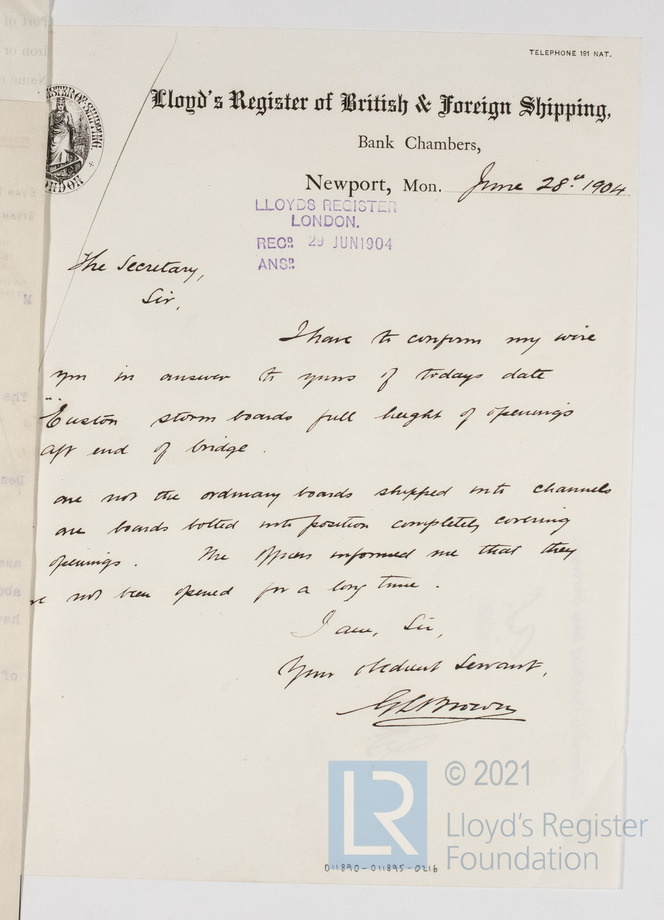 TELEPHONE 191 NAT.
Lloyd's Register of British & Foreign Shipping,
Bank Chambers,
Newport, Mon. June 28th 1904
LLOYDS REGISTER
LONDON.
RECD. 29 JUN 1904
ANSD.
The Secretary,
Sir,
I have to confirm my wire
you in answer to yours of todays date
"Euston storm boards full height of openings
aft end of bridge.
are not the ordinary boards shipped into channels
are boards bolted into position completely covering
openings. The Officers informed me that they
not been opened for a long time.
I am, Sir,
Your obedient Servant,
GLBrown
LR
© 2021
Lloyd's Register
Foundation
011890-011895-0216